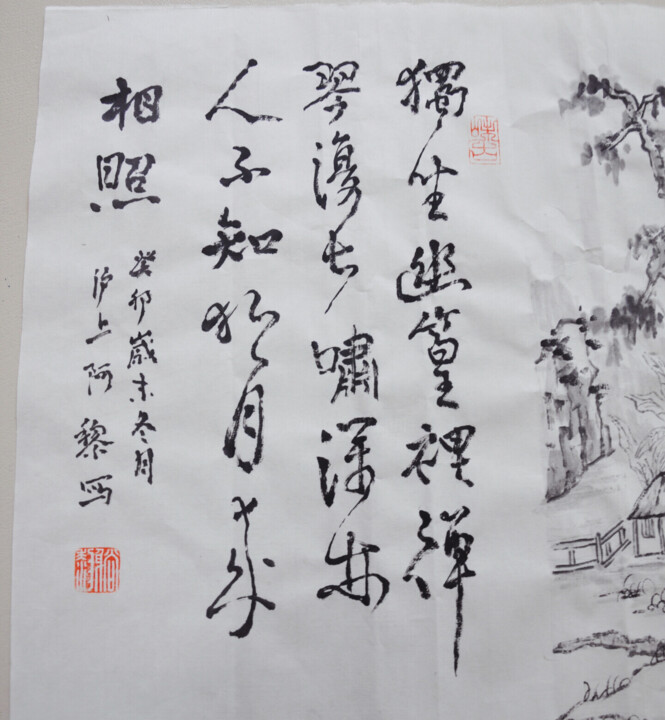 獨坐幽篁裡彈
琴復长嘯深林
人不知明月來
相照
癸卯歲末冬月
沪上阿黎写